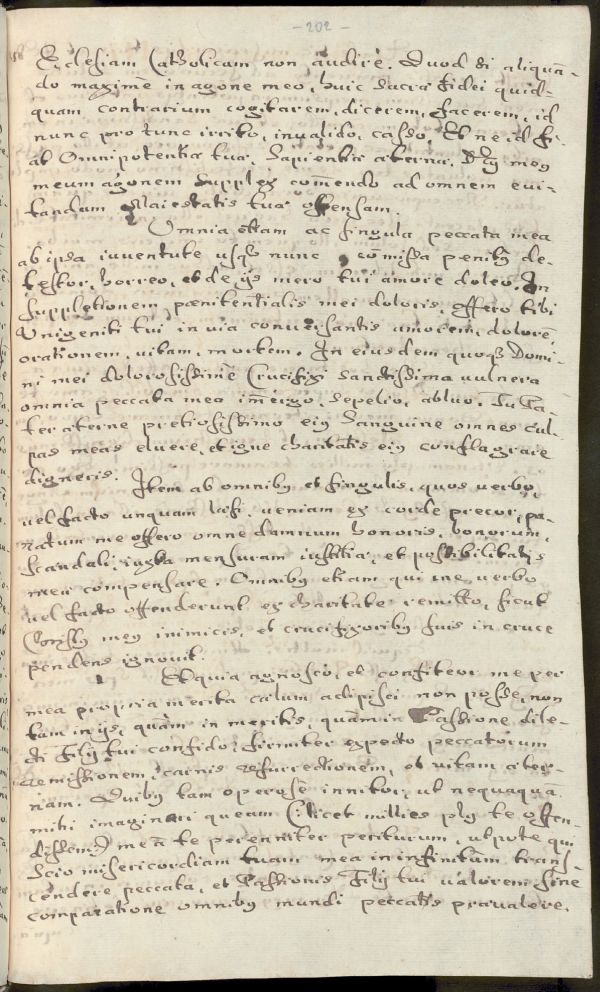 - 202 -
Ecclesiam Catholicam non audire. Quod si aliquan-
do maximè in agone meo, huic sacrae fidei quid-
quam contrarium cogitarem, dicerem, facerem, id
nunc pro tunc irrito, invalido, casso. Et ne id fi-
at Omnipotentiae tuae, Sapientiae aeternae,
meum agonem supplex com̄endo ad omnem evi-
tandum Maiestatis tuae offensam.
Omnia etiam ac singula peccata mea
ab ipsa iuventute usq3 nunc com̄issa penitus de-
testor, horreo, et de ijs mero tui amore doleo. In
suppletionem paenitentialis mei doloris, offero tibi
Unigeniti tui in via conversantis amorem, dolorē,
orationem, vitam, mortem. In eiusdem quoq3 Domi-
ni mei dolorosissimè Crucifixi sanctissima vulnera
omnia peccata mea im̄ergo, sepelio, abluo. Tu Pa-
ter aeterne pretiosissimo eius Sanguine omnes cul-
pas meas eluere, et igne charitatis eius conflagrare
digneris. Item ab omnibus et singulis, quos verbo,
vel facto unquam laesi, veniam ex corde precor, pa-
ratum me offero omne damnum honoris, bonorum,
scandali, iuxta mensuram iustitiae, et possibilitatis
meae compensare. Omnibus etiam qui me verbo
vel facto offenderunt ex charitate remitto, sicut
Christus meus inimicis, et crucifixoribus suis in cruce
pendens ignovit.
Et quia agnosco, et confiteor me per
mea propria merita caelum adipisci non posse, non
tam in ijs, quàm in meritis, quam in Passione dile-
cti Filij tui confido: firmiter expecto peccatorum
remissionem, carnis resurrectionem, et vitam aeter-
nam. Quibus tam operosè innitor, ut nequaquā
mihi imaginari queam (: licet millies plus te offen-
dissem :) me à te perenniter periturum, utpote qui
scio misericordiam tuam mea in infinitum trans-
cendere peccata, et Passionis Filij tui valorem sine
comparatione omnibus mundi peccatis praevalere.